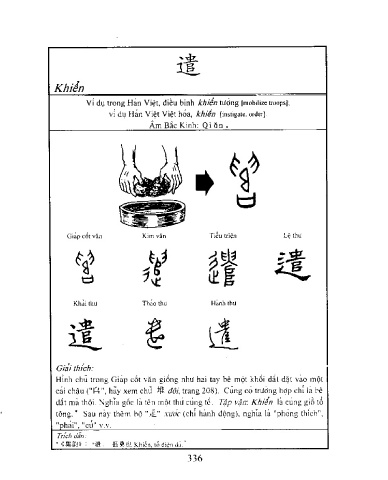 遣
Khiển
Ví dụ trong Hán Việt, điều binh khiển tướng [mobilize troops];
ví dụ Hán Việt Việt hóa, khiển [instigate, order]
Âm Bắc Kinh: Qiǎn.
Giáp cốt văn Kim văn Tiểu triện Lệ thư
遣
Khải thư Thảo thư Hành thư
遣 遣
Giải thích:
Hình chữ trong Giáp cốt văn giống như hai tay bê một khối đất đặt vào một
cái chậu ("口", hãy xem chữ 堆 đôi, trang 208). Cũng có trường hợp chỉ là bê
đất mà thôi. Nghĩa gốc là tên một thứ cúng tế. Tập vận: Khiển là cúng giỗ tổ
tông." Sau này thêm bộ "辵" xước (chỉ hành động), nghĩa là "phóng thích",
"phái", "cử" v.v.
Trích dẫn:
Khiển, tổ điện dã."
336